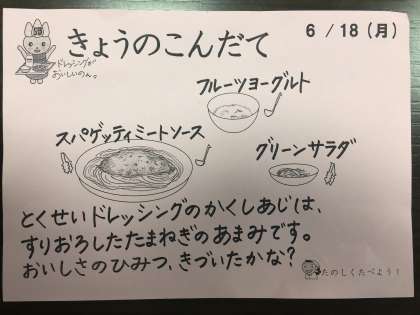 きょうのこんだて
6/18(月)
ドレッシングが
おいしいのん。
フルーツヨーグルト
スパゲッティミートソース
グリーンサラダ
とくせいドレッシングのかくしあじは、
すりおろしたたまねぎのあまみです。
おいしさのひみつ、きづいたかな?
たのしくたべよう!